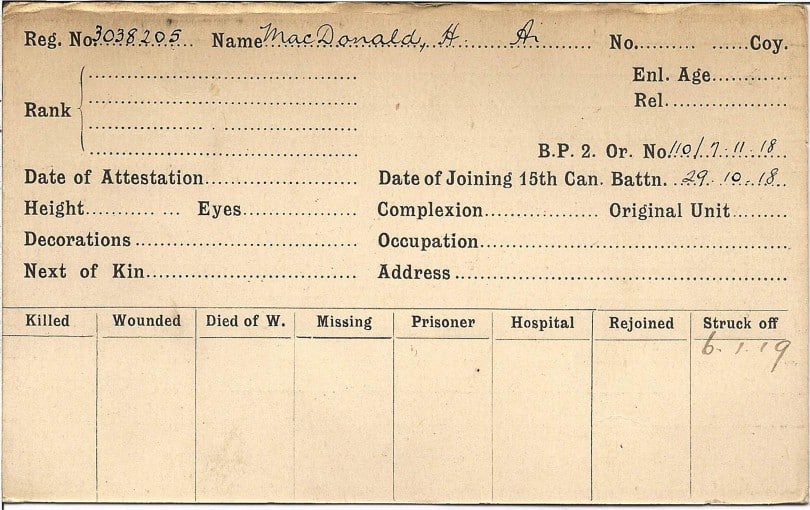 Reg. No. 3038205 Name MacDonald, H. A. No. Coy.
Enl. Age
Rel.
Rank
B.P. 2. Or. No. 110/7.11.18
Date of Attestation Date of Joining 15th Can. Battn. 29.10.18.
Height Eyes Complexion Original Unit
Decorations Occupation
Next of Kin Address
Killed Wounded Died of W. Missing Prisoner Hospital Rejoined Struck off
6.1.19